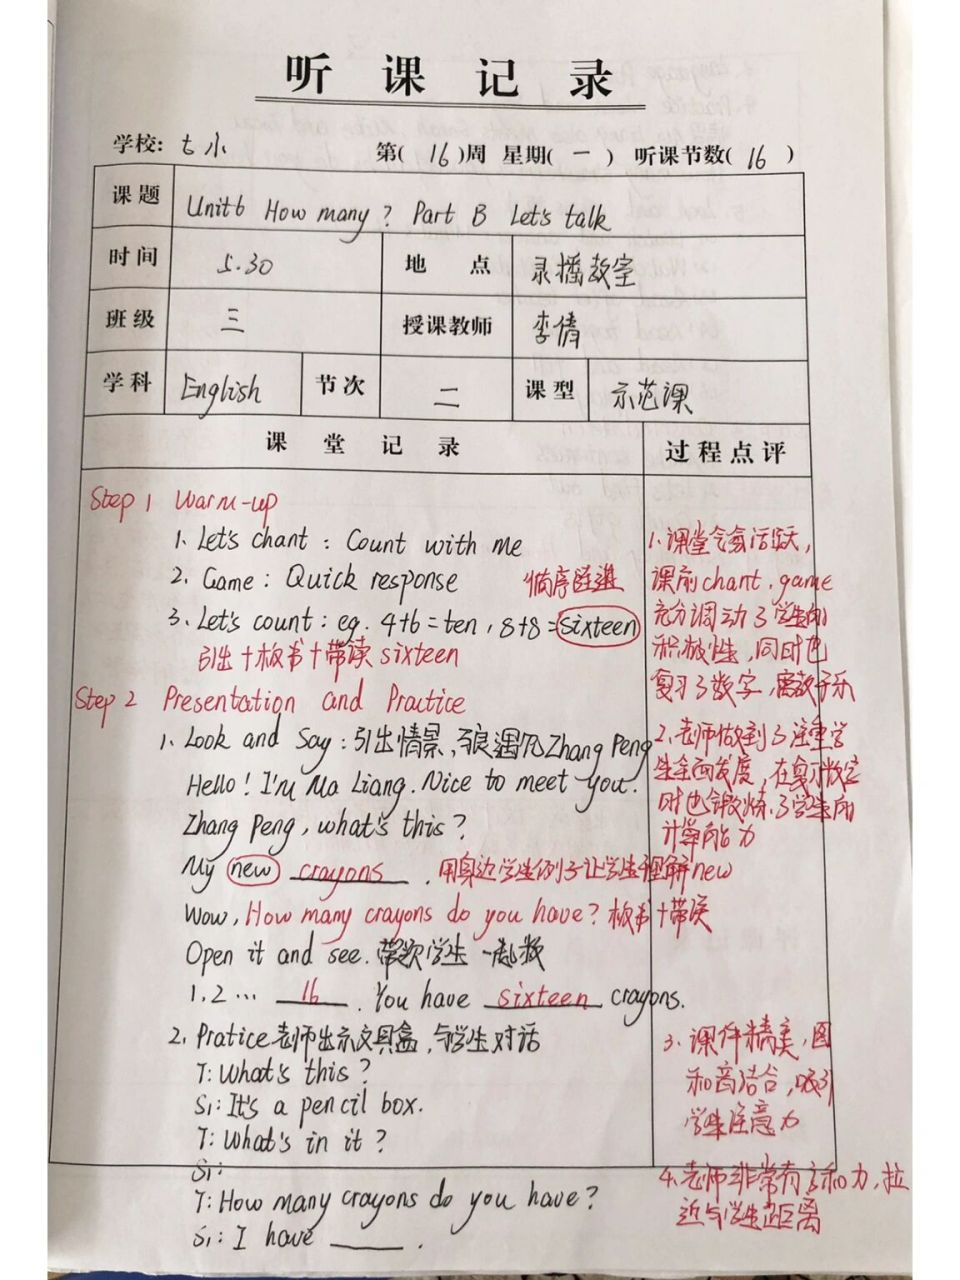 听课记录
学校: 七小 第( 16 )周 星期( 一 ) 听课节数( 16 )
课题 Unit6 How many? Part B Let's talk
时间 5.30 地点 录播教室
班级 三 授课教师 李倩
学科 English 节次 二 课型 示范课
课堂记录 过程点评
Step 1 Warm-up
1. Let's chant: Count with me
2. Game: Quick response 循序渐进
3. Let's count: eg. 4+6=ten, 8+8=sixteen
引出+板书+带读 sixteen
Step 2 Presentation and Practice
1. Look and Say: 引出情景, 马良遇见Zhang Peng
Hello! I'm Ma Liang. Nice to meet you.
Zhang Peng, what's this?
My new crayons. 用身边学生例子让学生理解new
Wow, How many crayons do you have? 板书+带读
Open it and see. 带领学生一起数
1.2... 16. You have sixteen crayons.
2. Pratice 老师出示文具盒, 与学生对话
T: What's this?
S1: It's a pencil box.
T: What's in it?
S1:
T: How many crayons do you have?
S1: I have ____.
1. 课堂气氛活跃,
课前chant, game
充分调动了学生的
积极性, 同时也
复习了数字, 寓教于乐
2. 老师做到了注重学
生全面发展, 在复习数字
时也锻炼了学生的
计算能力
3. 课件精美, 图
和音结合, 吸引
学生注意力
4. 老师非常有亲和力, 拉
近与学生距离